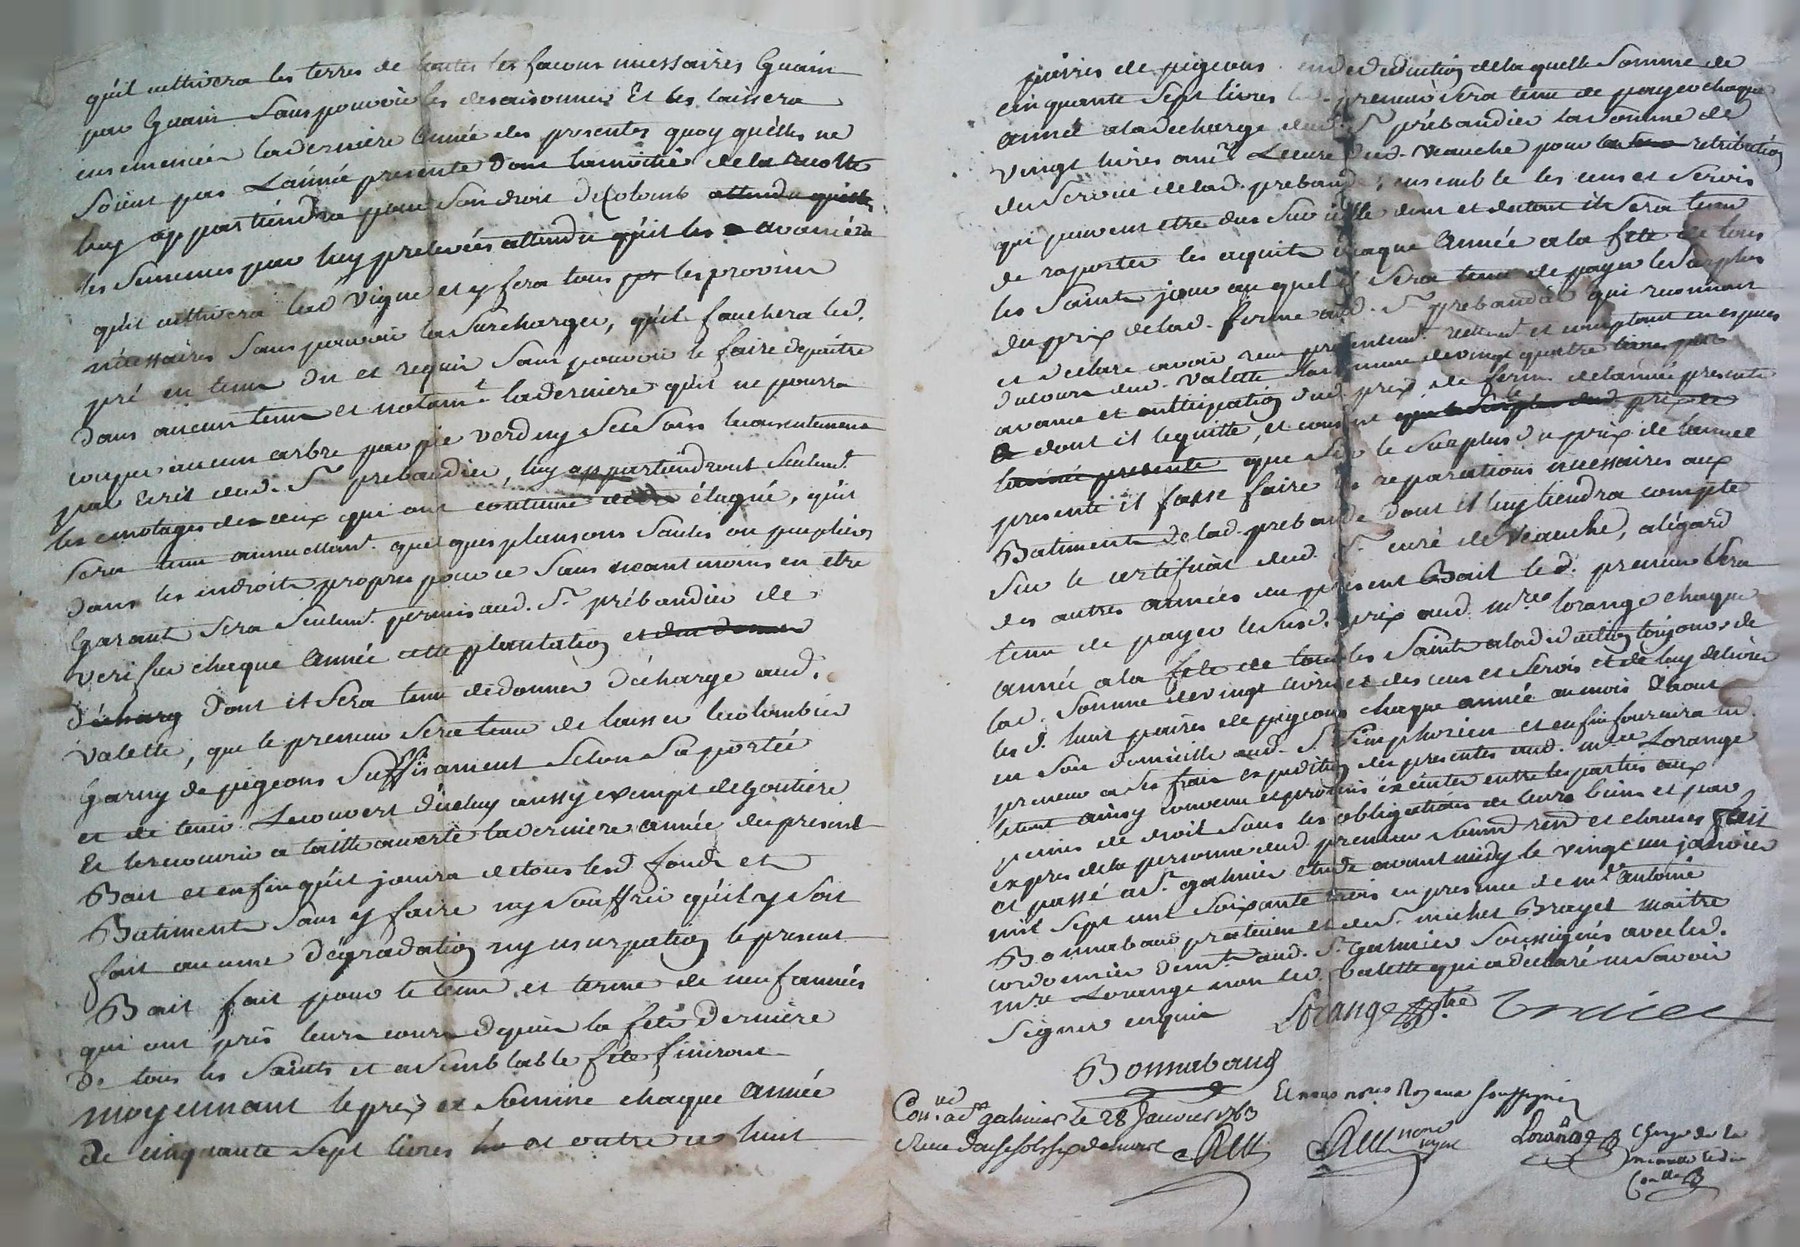 qu'il cultivera les terres de toutes les facons necessaires Guain
par Guain sans pouvoir les desaisonner Et les laissera
ensemencées la derniere année des presentes quoy qu'elles ne
soient pas L'année presente dont la moitié de la recolte
luy appartiendra pour son droit de Colomb attendu qu'elle
les semences par luy prelevées attendu qu'il les a avancées
qu'il cultivera lad vigne et y fera tous les provins
nécessaires sans pouvoir la surcharger, qu'il fauchera led.
pré en tems du et requis sans pouvoir le faire depaitre
dans aucun tems et notamt. la derniere qu'il ne pourra
couper aucun arbre par pie verd ny sec sans le consentement
par Ecrit dud. Sr. prebandier, luy appartiendront seulemt.
les emotages de ceux qui ont coutume d'etre élagué, qu'il
sera tenu annuellemt. quelques plansons saules ou pupliers
dans les endroits propres pour ce sans neant moins en etre
Garant sera seulemt. permis aud. Sr. prébandier de
verifier chaque année cette plantation et de donner
décharg dont il sera tenu de donner décharge aud.
Valette, que le preneur sera tenu de laisser le colombier
Garny de pigeons suffisament selon sa portée
et de tenir Le couvert d'iceluy aussy exempt de goutiere
Et le recouvrir a taille ouverte la derniere année du present
Bail et enfin qu'il jouira de tous lesd fonds et
Batiments sans y faire ny souffrir qu'il y soit
fait aucune dégradation ny usurpation le present
Bail fait pour le tems et terme de neuf années
qui ont pris leurs cours depuis la fete derniere
De tous les Saints et a semblable fête finiront
moyennant le prix et somme chaque année
de cinquante sept livres et outre ce huit
paires de pigeons en deduction de laquelle somme de
cinquante sept livres led. preneur sera tenu de payer chaque
année a la decharge dud. Sr. prébandier la somme de
vingt livres au Sr Lecuré dud. veauche pour retribution
du service de lad. prebande, ensemble les cens et servis
qui peuvent etre dus sur icelle dont et du tout il sera tenu
de raporter les aquits chaque année a la fete de tous
les Saints jour au quel il sera tenu de payer le surplus
du prix de lad. ferme aud. Sr. prebandier qui reconnait
et declare avoir reçu presentemt. reellemt. et comptant en especes
du cours dud. Valette la somme de vingt quatre livres par
avance et anticipation dud prix de ferme de l'année presente
dont il le quitte, et consent que le surplus dud. prix de
l'année presente que sur le surplus du prix de l'année
presente il fasse faire les reparations necessaires aux
Batiments de lad. prebande dont il luy tiendra compte
sur le certificat dud. Sr. curé de veauche, a légard
des autres années du present Bail led. preneur sera
tenu de payer le susd. prix aud. mre. lorange chaque
année a la fete de tous les Saints a lad deduction toujours de
lad. somme de vingt livres et des cens et servis et de luy delivrer
les d. huit paires de pigeons chaque année au mois d'aout
en son domicille aud. St. Simphorien et enfin fournira led.
preneur a ses frais expedition des presentes aud. mre. Lorange
le tout ainsy convenu et promis éxécuter entre les parties aux
peines de droit sous les obligations de leurs biens et par
expres de la personne dud preneur soumis rend et clauses fait
et passé a St. galmier etude avant midy le vingt un janvier
mil sept cent soixante trois en presence de mr. antoine
Bonnabaud praticien et de Sr. michel Brayet maitre
cordonnier demt. aud. St. galmier soussignés avec led.
mre Lorange non led valette qui a declaré ne savoir
signer enquis Lorange ptre
Bonnabaud
Et nous notre Royaux soussigné
Con. a St. galmier le 28 Janvier 1763
Lorange